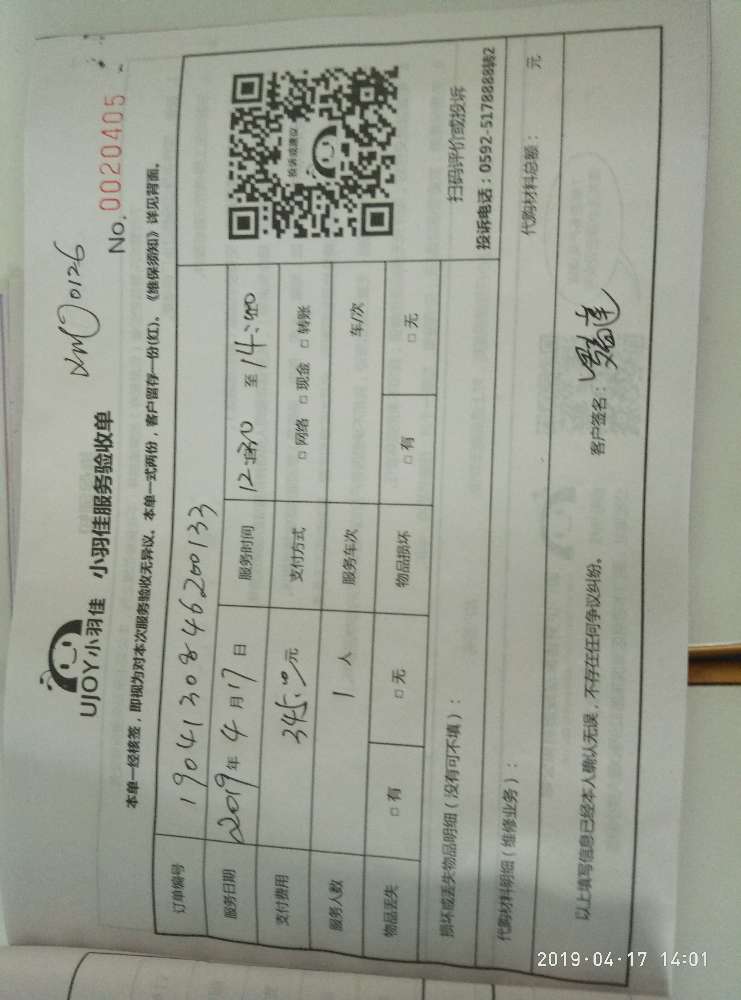 XMJ0126
UJOY小羽佳 小羽佳服务验收单
No. 0020405
本单一经核签，即视为对本次服务验收无异议。本单一式两份，客户留存一份(红)。《维保须知》详见背面。
订单编号 1904130846200133
服务日期 2019年 4 月 17 日 服务时间 12:30 至 14:00
支付费用 345.0元 支付方式 □网络 □现金 □转账
服务人数 1 人 服务车次 车/次
物品丢失 □有 □无 物品损坏 □有 □无
投诉或建议
扫码评价或投诉
投诉电话：0592-5178888转2
损坏或丢失物品明细（没有可不填）：
代购材料明细（维修业务）： 代购材料总额： 元
以上填写信息已经本人确认无误，不存在任何争议纠纷。 客户签名：
2019-04-17 14:01